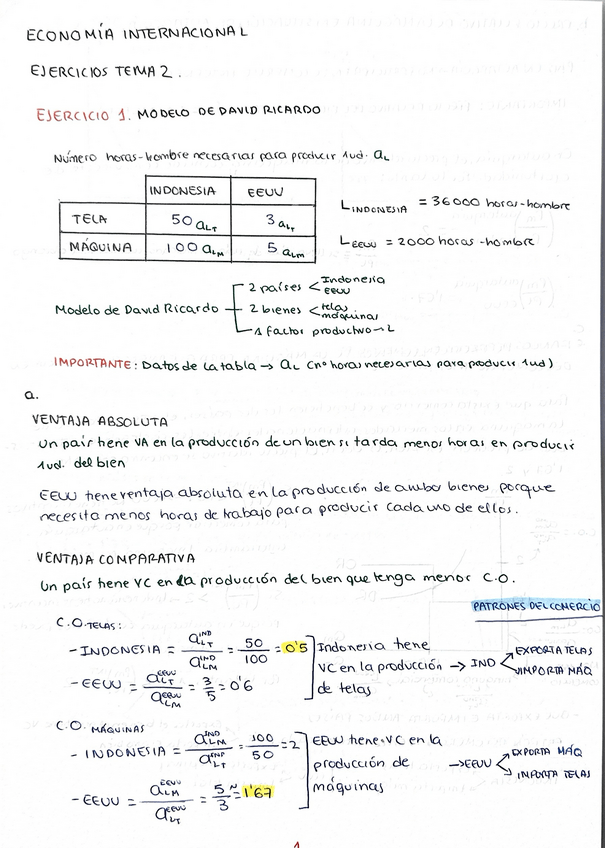 ECONOMÍA INTERNACIONAL
EJERCICIOS TEMA 2.
EJERCICIO 1. MODELO DE DAVID RICARDO
Número horas-hombre necesarias para producir 1ud. aL
INDONESIA EEUU
TELA 50 aLT 3 aLT
MÁQUINA 100 aLM 5 aLM
LINDONESIA = 36000 horas-hombre
LEEUU = 2000 horas-hombre
Modelo de David Ricardo
2 países < Indonesia EEUU
2 bienes < telas máquinas
1 factor productivo → L
IMPORTANTE: Datos de la tabla → aL (nº horas necesarias para producir 1ud)
a.
VENTAJA ABSOLUTA
Un país tiene VA en la producción de un bien si tarda menos horas en producir
1ud. del bien
EEUU tiene ventaja absoluta en la producción de ambos bienes, porque
necesita menos horas de trabajo para producir cada uno de ellos.
VENTAJA COMPARATIVA
Un país tiene VC en la producción del bien que tenga menor C.O.
PATRONES DEL COMERCIO
C.O. TELAS:
- INDONESIA = aLT^IND / aLM^IND = 50/100 = 0'5
- EEUU = aLT^EEUU / aLM^EEUU = 3/5 = 0'6
Indonesia tiene
VC en la producción → IND
de telas
EXPORTA TELAS
IMPORTA MÁQ
C.O. MÁQUINAS
- INDONESIA = aLM^IND / aLT^IND = 100/50 = 2
- EEUU = aLM^EEUU / aLT^EEUU = 5/3 ≈ 1'67
EEUU tiene VC en la
producción de → EEUU
máquinas
EXPORTA MÁQ
IMPORTA TELAS
1